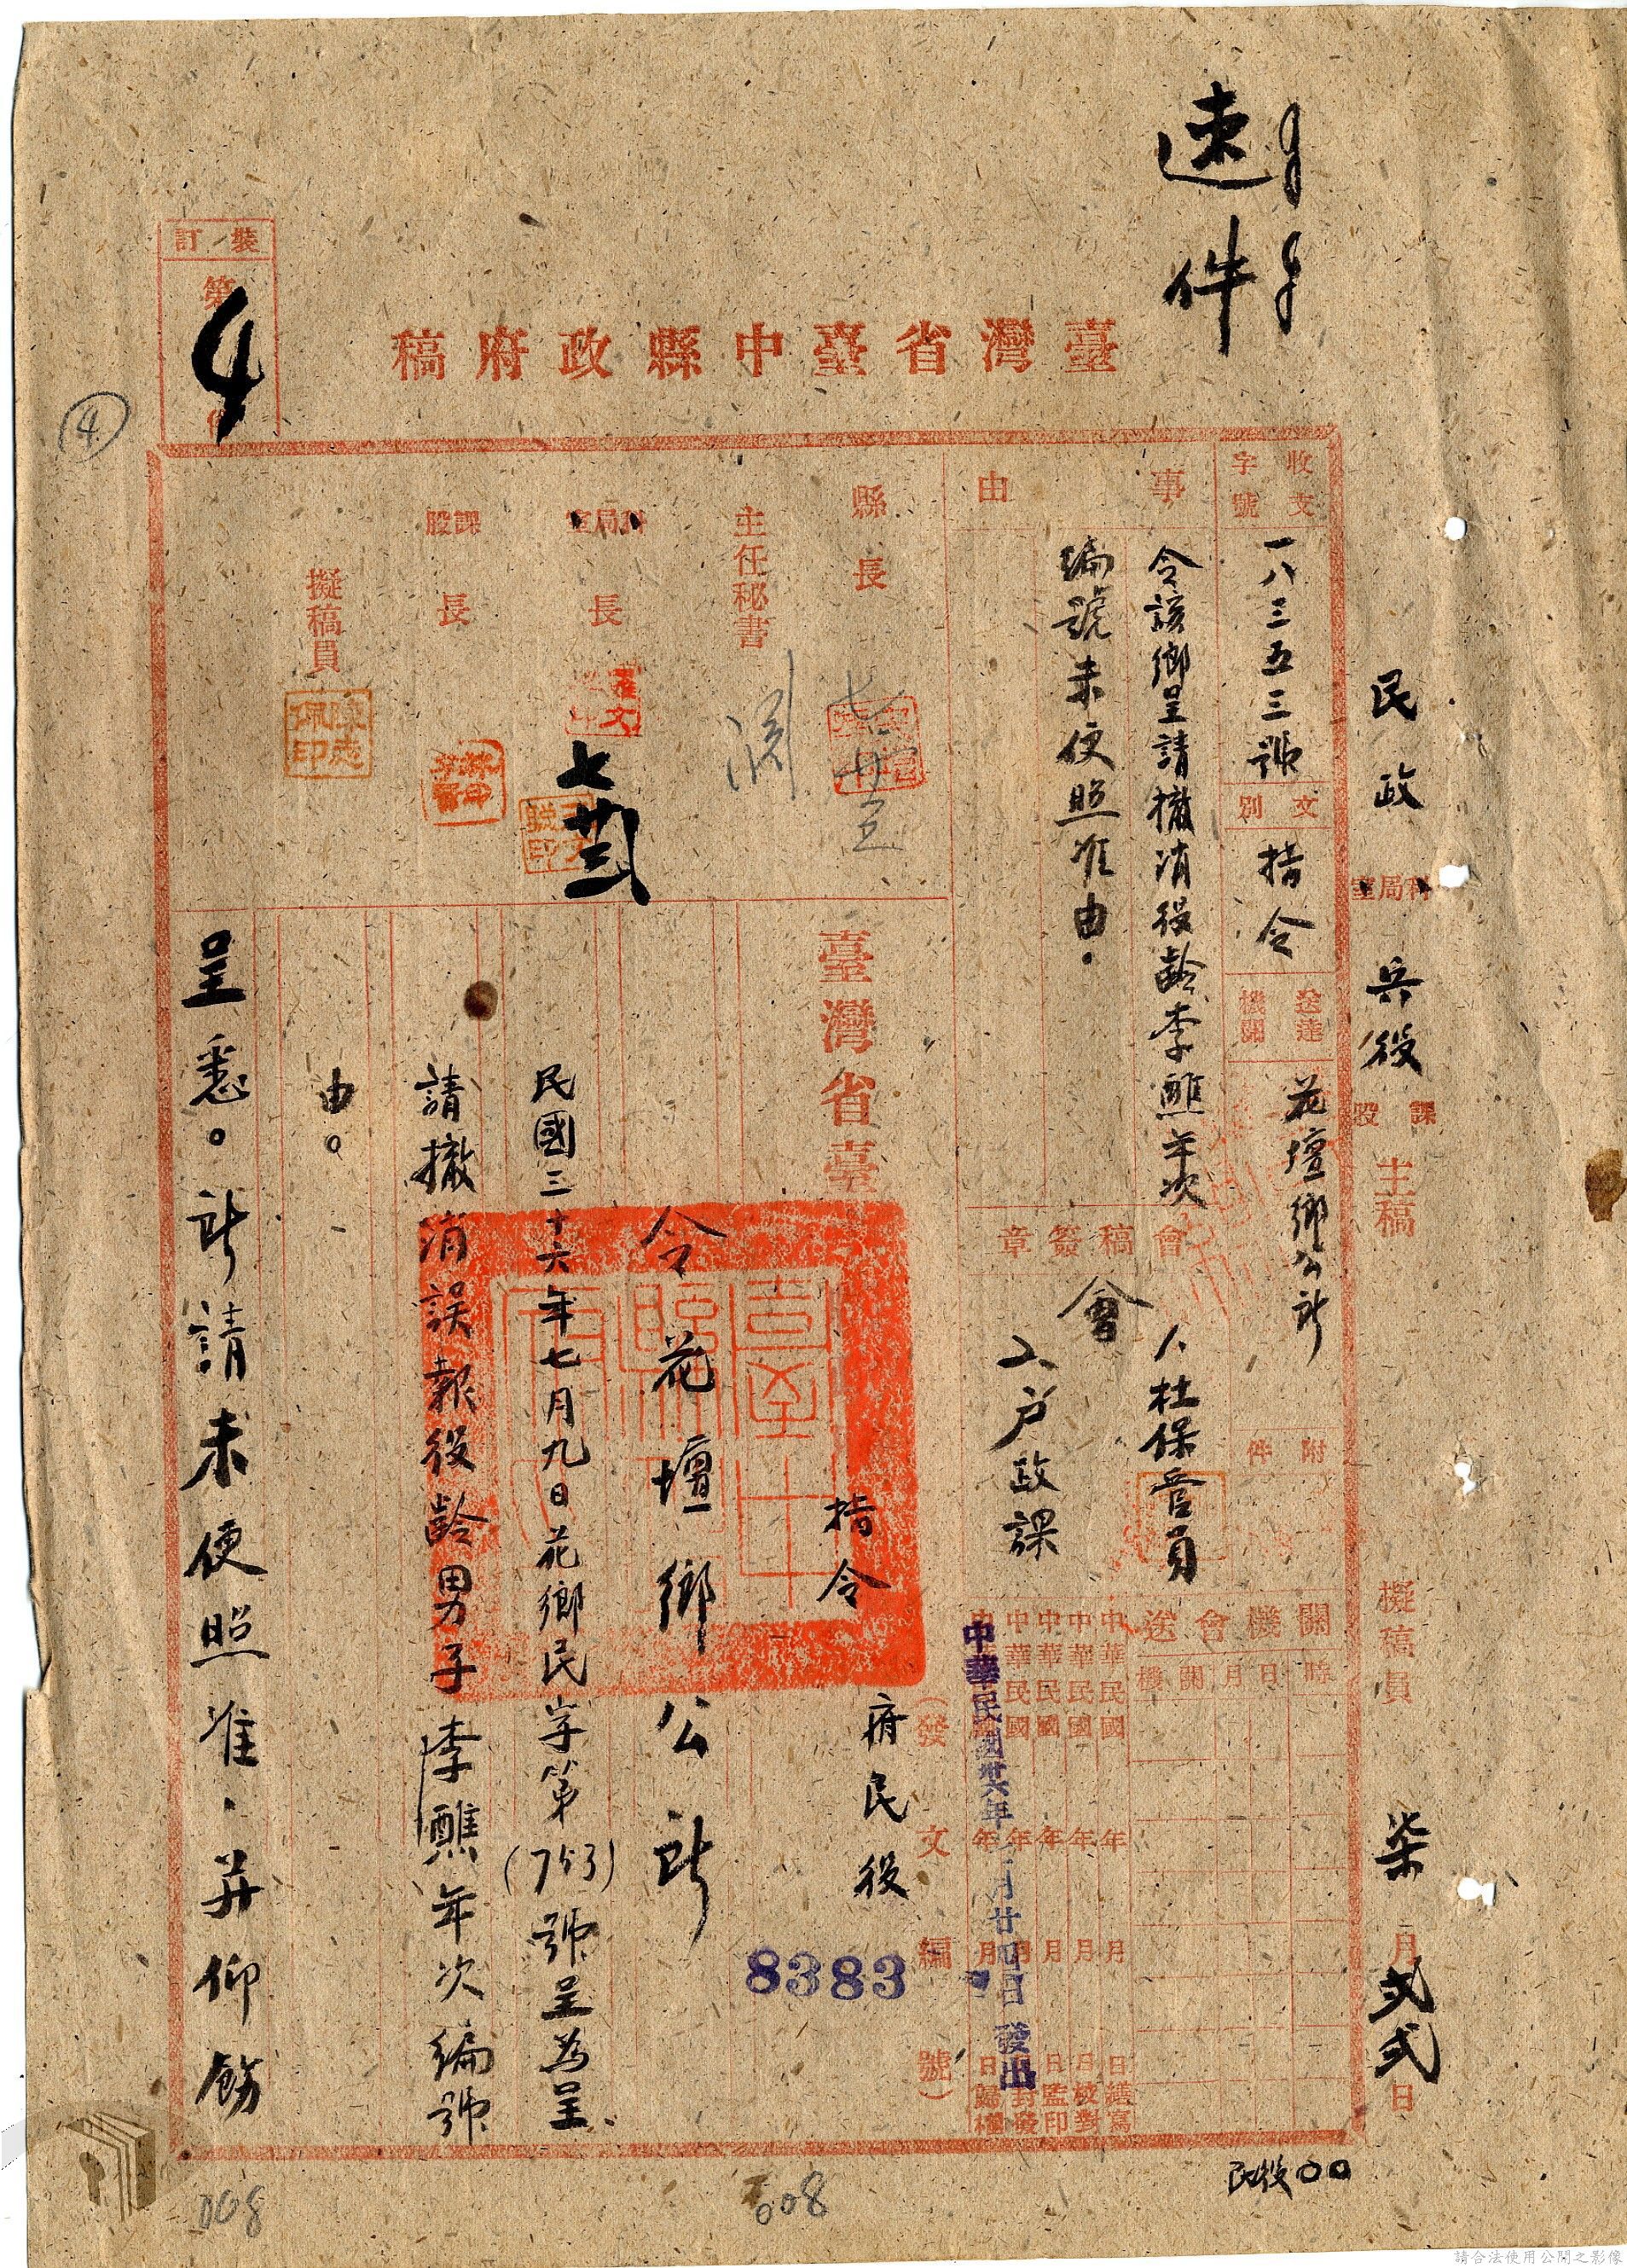 速件
裝訂
第
4
④
臺灣省臺中縣政府稿
民政 科局室 兵役 課股 主稿 擬稿員 柒月弍弍日
收文字號 一八三五三號
文別 指令
送達機關 花壇鄉公所
附件
事由
令該鄉呈請撤消役齡李醮年次
編號未便照准由。
會稿簽章
會
人杜保管員
入戶政課
關機會送
機關 月 日 時
縣長
七 廿 五
主任秘書
科局室長
七 廿三
課股長
擬稿員
中華民國 年 月 日繕寫
中華民國 年 月 日校對
中華民國 年 月 日監印
中華民國 年 月 日封發
中華民國 年 月 日歸檔
中華民國卅六年 月廿四日發出
(發文編號)
臺灣省臺
指令
府民役
8383
令花壇鄉公所
民國三十六年七月九日花鄉民字第(753)號呈為呈
請撤消誤報役齡男子李醮年次編號
由。
呈悉。所請未便照准,并仰飭
民役00
008
008
請合法使用公開之影像